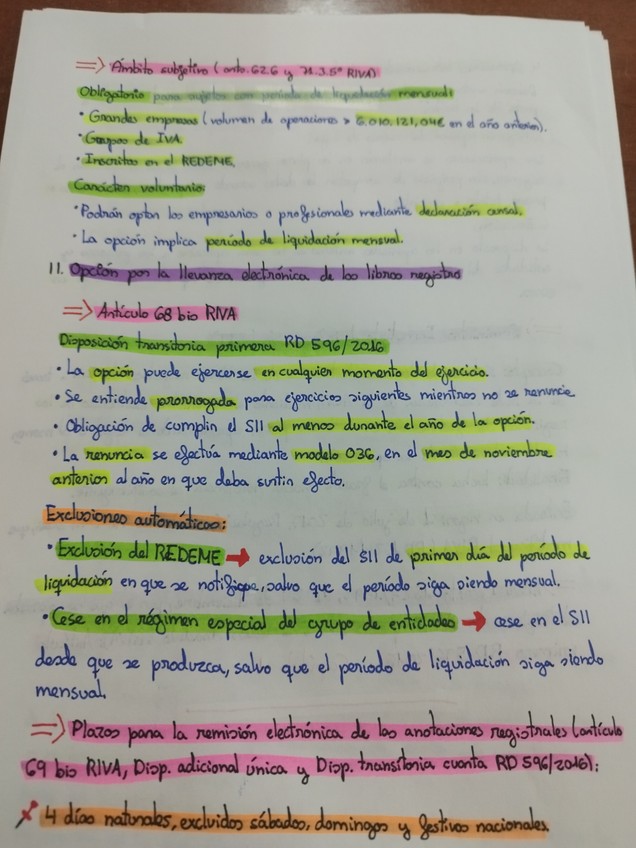 ⇒ Ámbito subjetivo (arts. 62.6 y 71.3.5º RIVA)
Obligatorio para sujetos con período de liquidación mensual:
· Grandes empresas (volumen de operaciones > 6.010.121,04€ en el año anterior).
· Grupos de IVA.
· Inscritos en el REDEME.
Carácter voluntario:
· Podrán optar los empresarios o profesionales mediante declaración censal.
· La opción implica período de liquidación mensual.
11. Opción por la llevanza electrónica de los libros registro
⇒ Artículo 68 bis RIVA
Disposición transitoria primera RD 596/2016
· La opción puede ejercerse en cualquier momento del ejercicio.
· Se entiende prorrogada para ejercicios siguientes mientras no se renuncie
· Obligación de cumplir el SII al menos durante el año de la opción.
· La renuncia se efectúa mediante modelo 036, en el mes de noviembre
anterior al año en que deba surtir efecto.
Exclusiones automáticas:
· Exclusión del REDEME → exclusión del SII de primer día del período de
liquidación en que se notifique, salvo que el período siga siendo mensual.
· Cese en el régimen especial del grupo de entidades → cese en el SII
desde que se produzca, salvo que el período de liquidación siga siendo
mensual.
⇒ Plazos para la remisión electrónica de las anotaciones registrales (artículo
69 bis RIVA, Disp. adicional única y Disp. transitoria cuarta RD 596/2016):
4 días naturales, excluidos sábados, domingos y festivos nacionales.